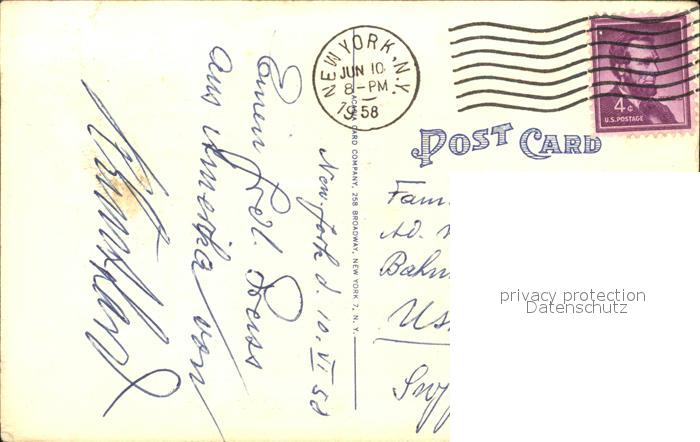 NEW YORK, N.Y.
JUN 10
8-PM
1958
4¢
U.S. POSTAGE
POST CARD
ACACIA CARD COMPANY, 258 BROADWAY, NEW YORK 7, N. Y.
New York d. 10. VI 58
Einen frdl. Gruss
aus Amerika von
Fam
Ad.
Bahn
Us
privacy protection
Datenschutz